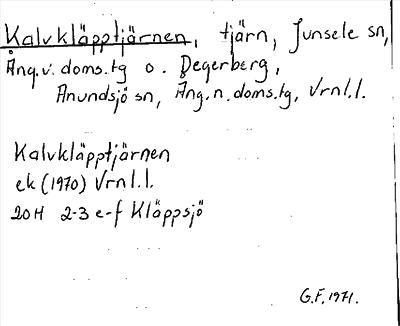 Kalvkläpptjärnen, tjärn, Junsele sn,
Ång.v.doms.tg o. Degerberg,
Anundsjö sn, Ång.n.doms.tg, Vrnl.l.
Kalvkläpptjärnen
ek (1970) Vrnl.l.
20H 2-3 e-f Kläppsjö
G.F. 1971.